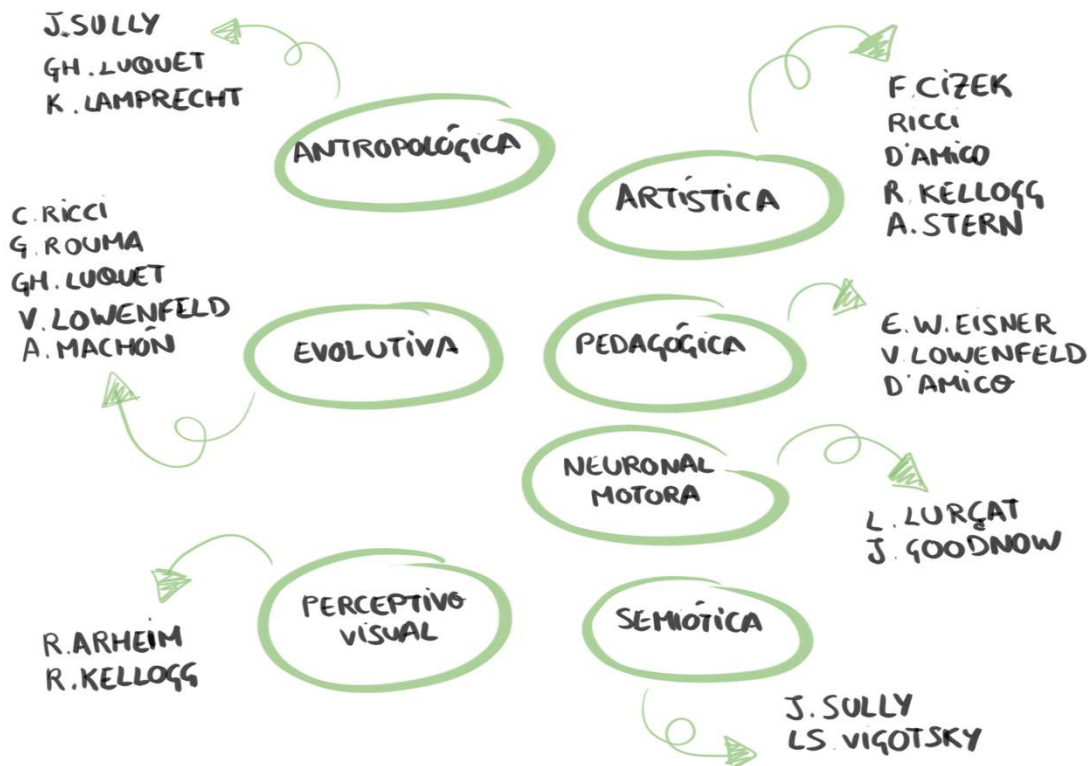 J.SULLY
GH.LUQUET
K.LAMPRECHT
ANTROPOLÓGICA
F.CIZEK
RICCI
D'AMICO
R.KELLOGG
A.STERN
ARTÍSTICA
C.RICCI
G.ROUMA
GH.LUQUET
V.LOWENFELD
A.MACHÓN
EVOLUTIVA
PEDAGÓGICA
E.W.EISNER
V.LOWENFELD
D'AMICO
NEURONAL
MOTORA
L.LURÇAT
J.GOODNOW
PERCEPTIVO
VISUAL
R.ARHEIM
R.KELLOGG
SEMIÓTICA
J.SULLY
LS.VIGOTSKY